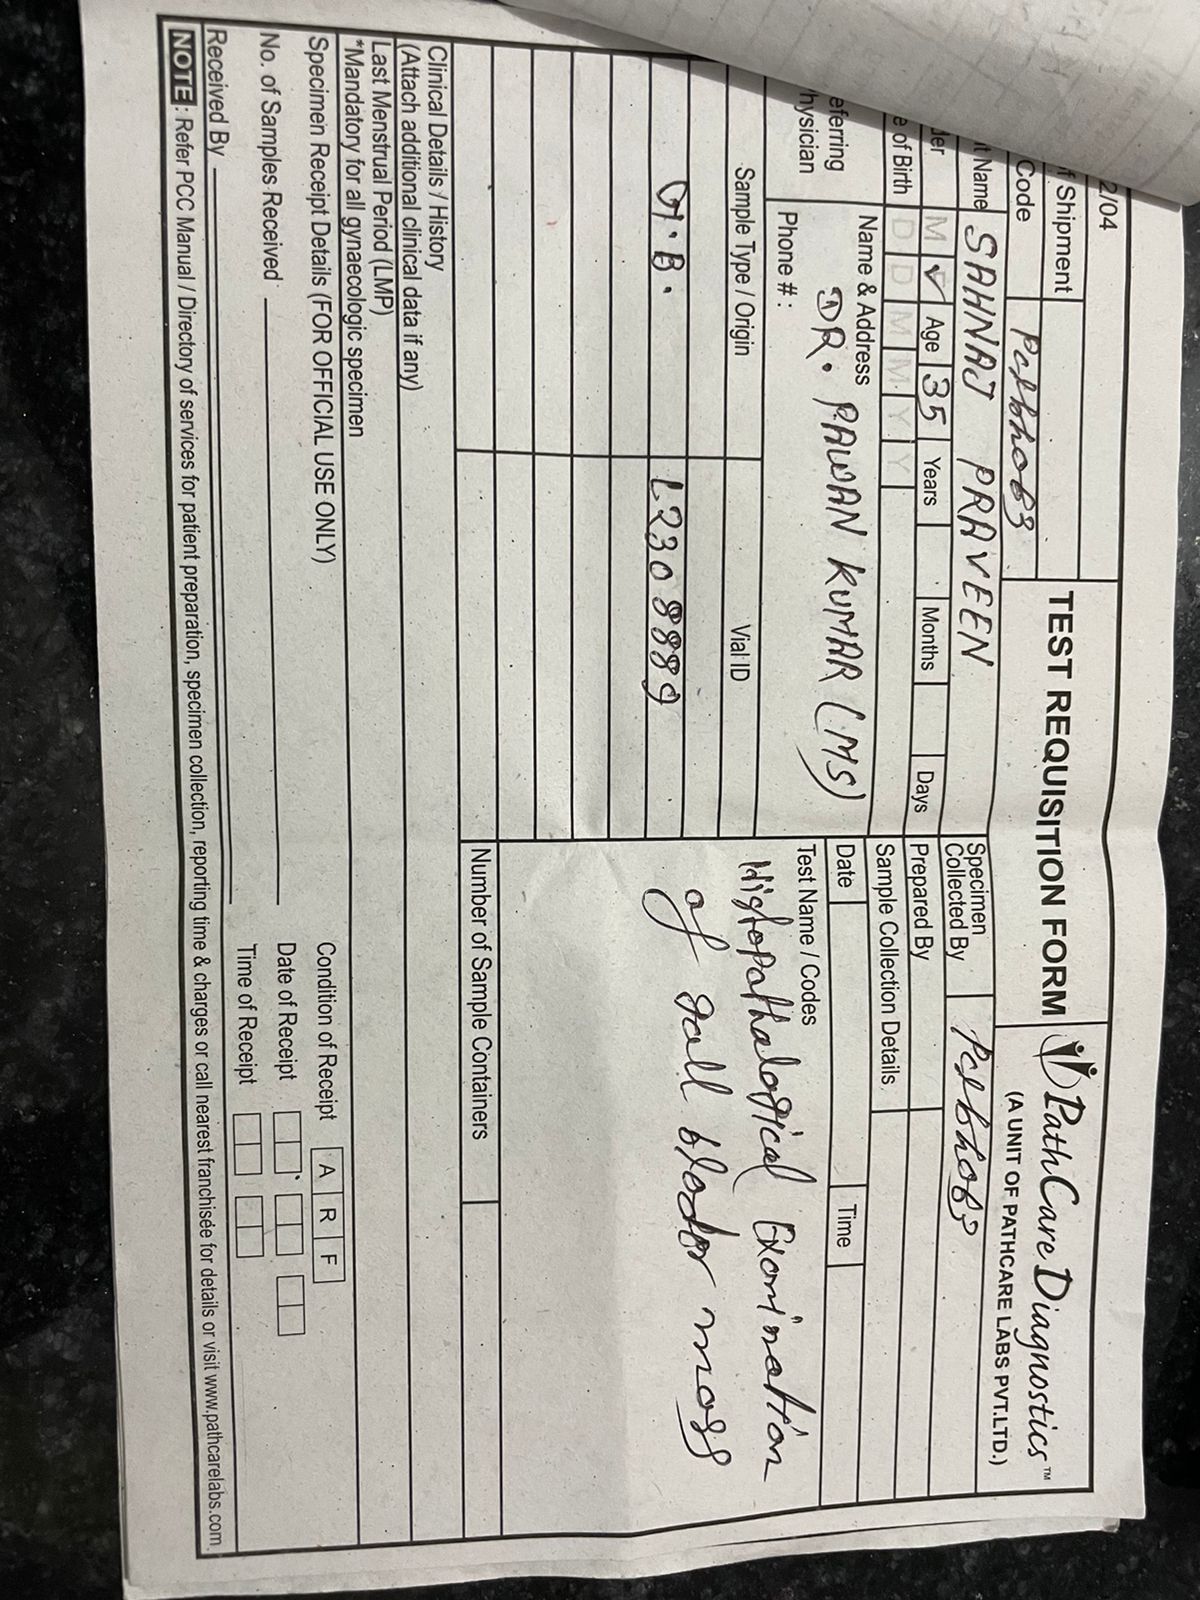 2/04
TEST REQUISITION FORM
PathCare Diagnostics™
(A UNIT OF PATHCARE LABS PVT.LTD.)
f Shipment
Code
t Name SAHNAJ PRAVEEN
der M ✓ Age 35 Years Months Days
e of Birth D D M M Y Y
eferring
hysician
Name & Address
DR. PAWAN KUMAR (MS)
Phone # :
Specimen
Collected By
Prepared By
Sample Collection Details
Date Time
Test Name / Codes
Histopathalogical Examination
of gall blader mass
Sample Type / Origin Vial ID
G.B. L2308889
Number of Sample Containers
Clinical Details / History
(Attach additional clinical data if any)
Last Menstrual Period (LMP)
*Mandatory for all gynaecologic specimen
Specimen Receipt Details (FOR OFFICIAL USE ONLY)
Condition of Receipt A R F
No. of Samples Received
Date of Receipt
Received By
Time of Receipt
NOTE : Refer PCC Manual / Directory of services for patient preparation, specimen collection, reporting time & charges or call nearest franchisee for details or visit www.pathcarelabs.com